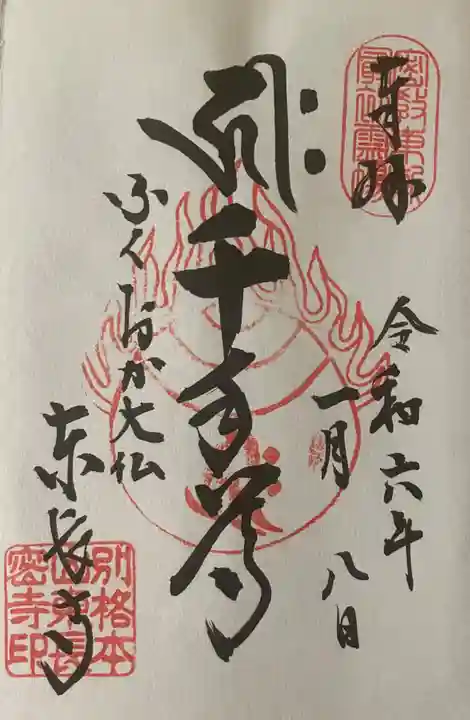 奉拝
令和六年
一月
八日
千手尊
ふくおか大仏
东长寺
別格本
山東長
密寺印